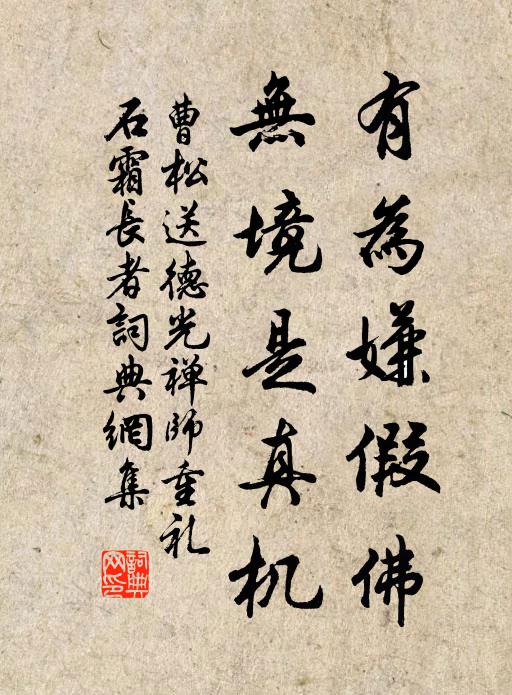 有為嫌假佛
無境是真机
曹松送德光禅師重礼
石霜長者詞典網集
詞典网印